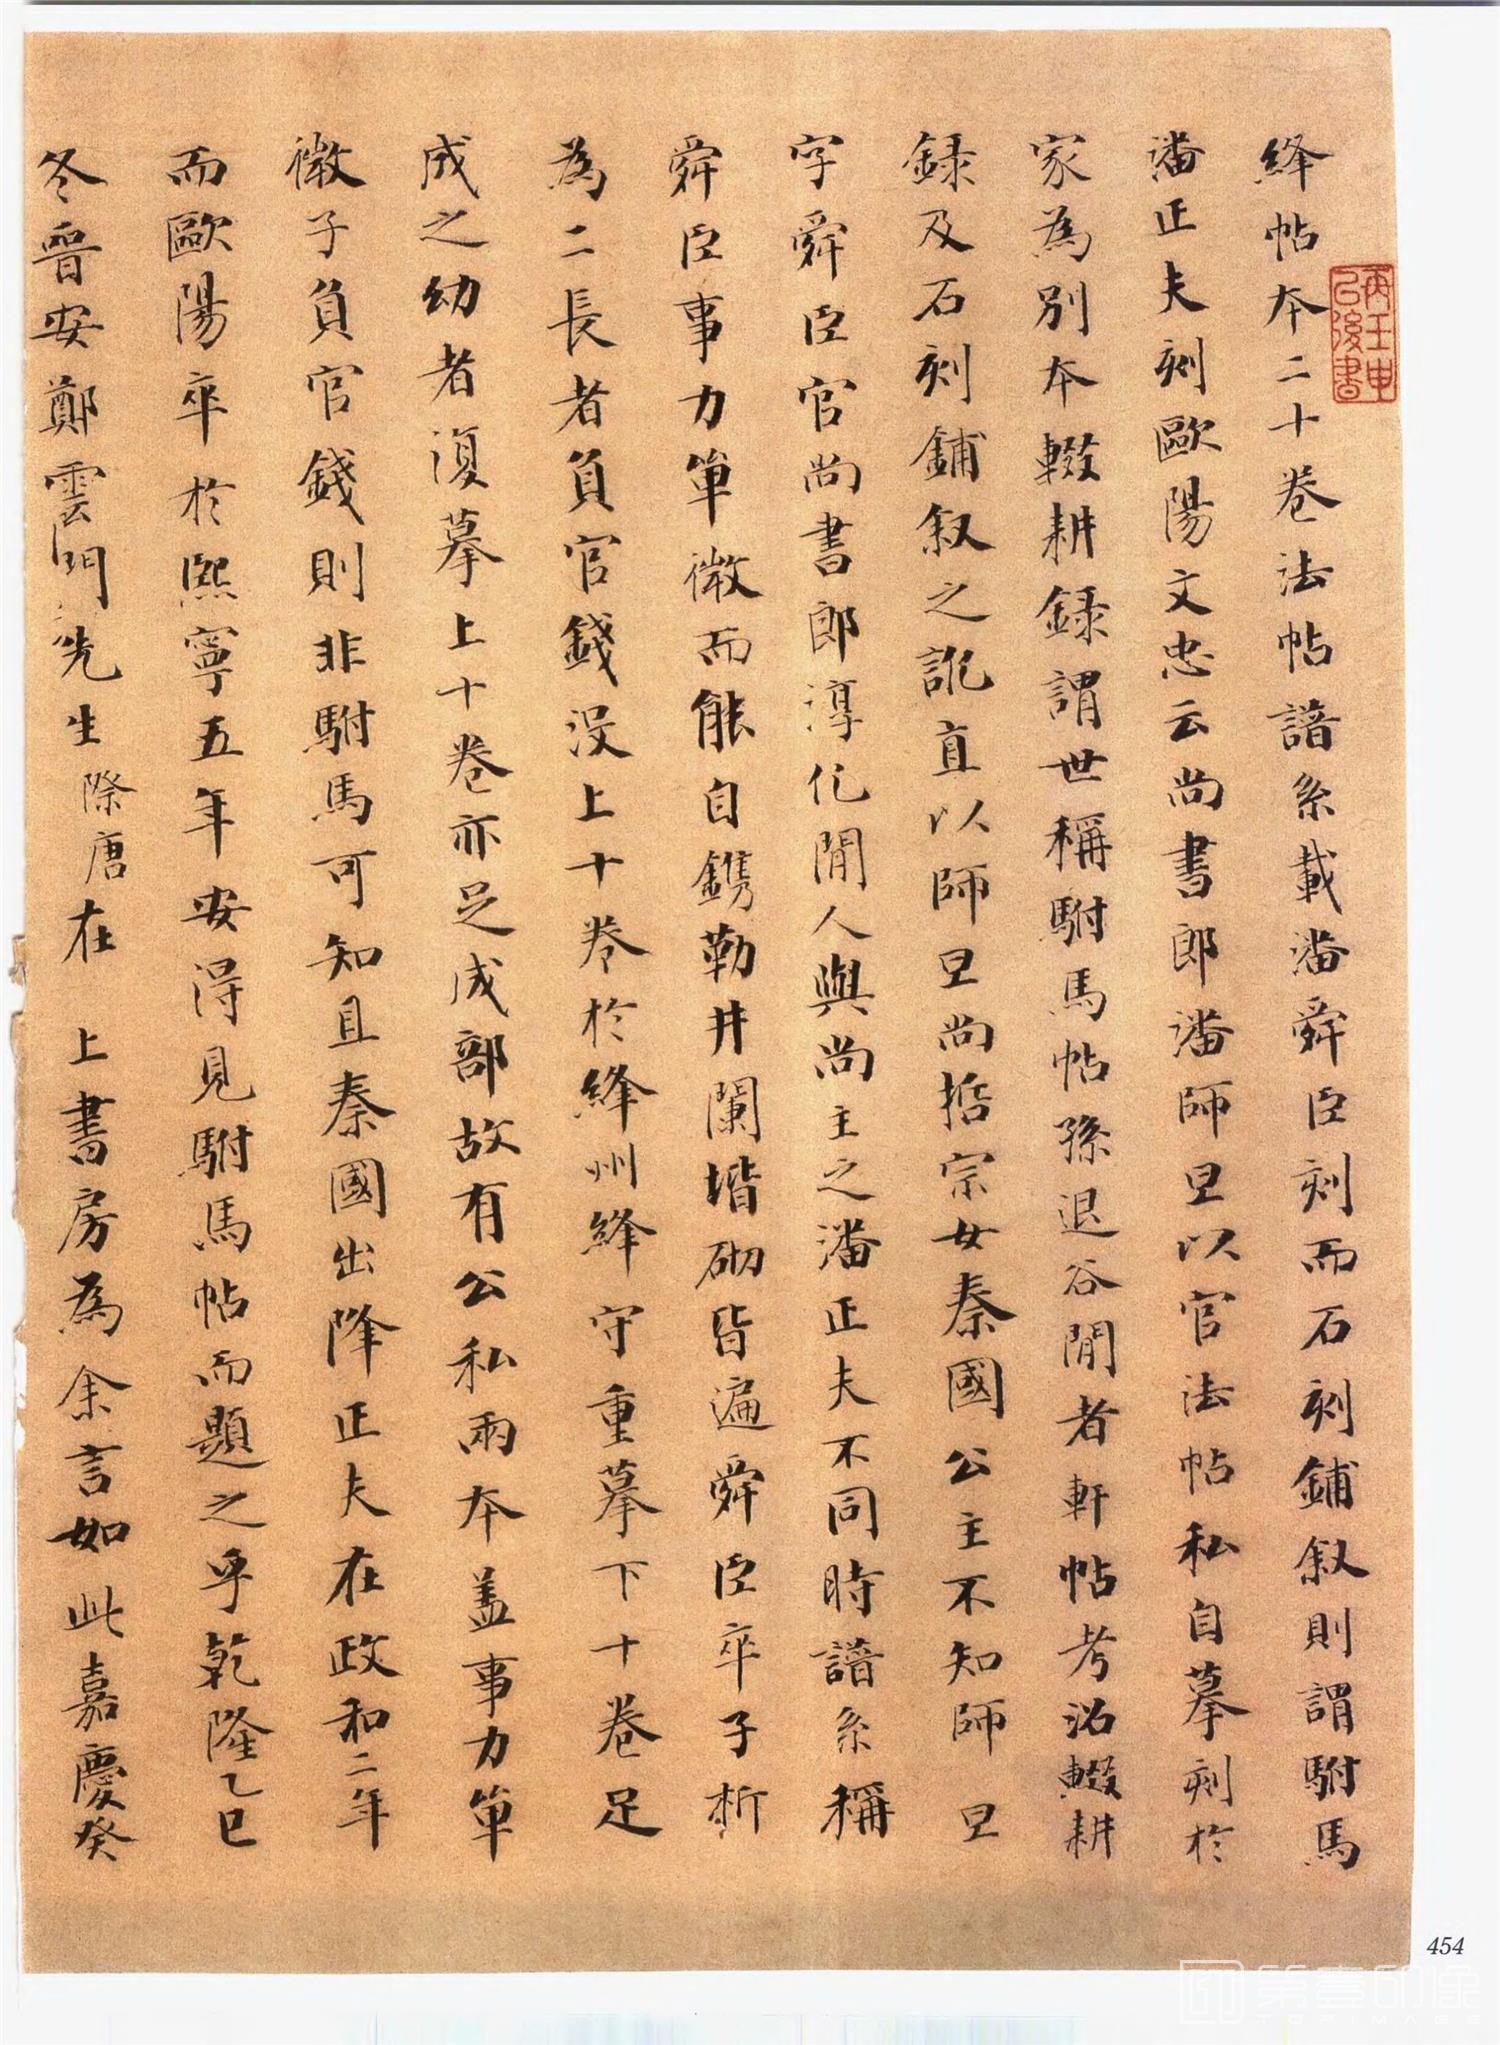 絳帖本二十卷法帖譜系載潘舜臣刻而石刻鋪叙則謂駙馬
潘正夫刻歐陽文忠云尚書郎潘師旦以官法帖私自摹刻於
家為別本輟耕録謂世稱駙馬帖孫退谷閒者軒帖考沿輟耕
録及石刻鋪叙之訛直以師旦尚哲宗女秦國公主不知師旦
字舜臣官尚書郎淳化閒人與尚主之潘正夫不同時譜系稱
舜臣事力單微而能自鐫勒井闌堦砌皆遍舜臣卒子析
為二長者負官錢没上十卷於絳州絳守重摹下十卷足
成之幼者復摹上十卷亦足成部故有公私兩本盖事力單
微子負官錢則非駙馬可知且秦國出降正夫在政和二年
而歐陽卒於熙寧五年安得見駙馬帖而題之乎乾隆乙巳
冬晉安鄭雲門先生際唐在 上書房為余言如此嘉慶癸
丙壬申
己後書
454
第壹印像
TOPIMAGE